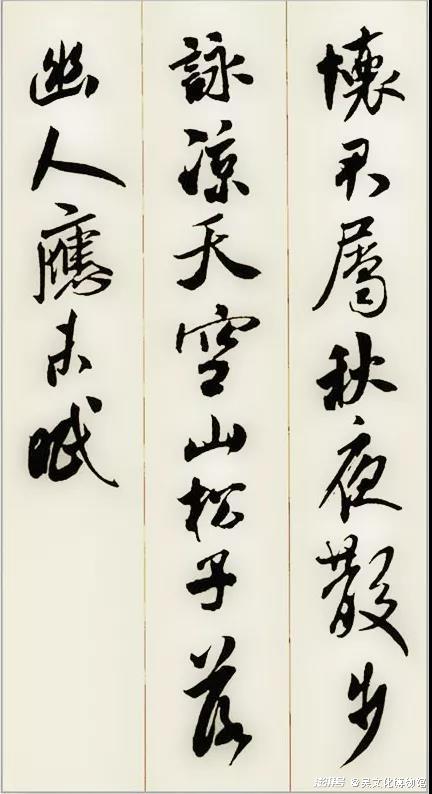 懷君屬秋夜散步
詠涼天空山松子落
幽人應未眠
澎湃号 @吴文化博物馆